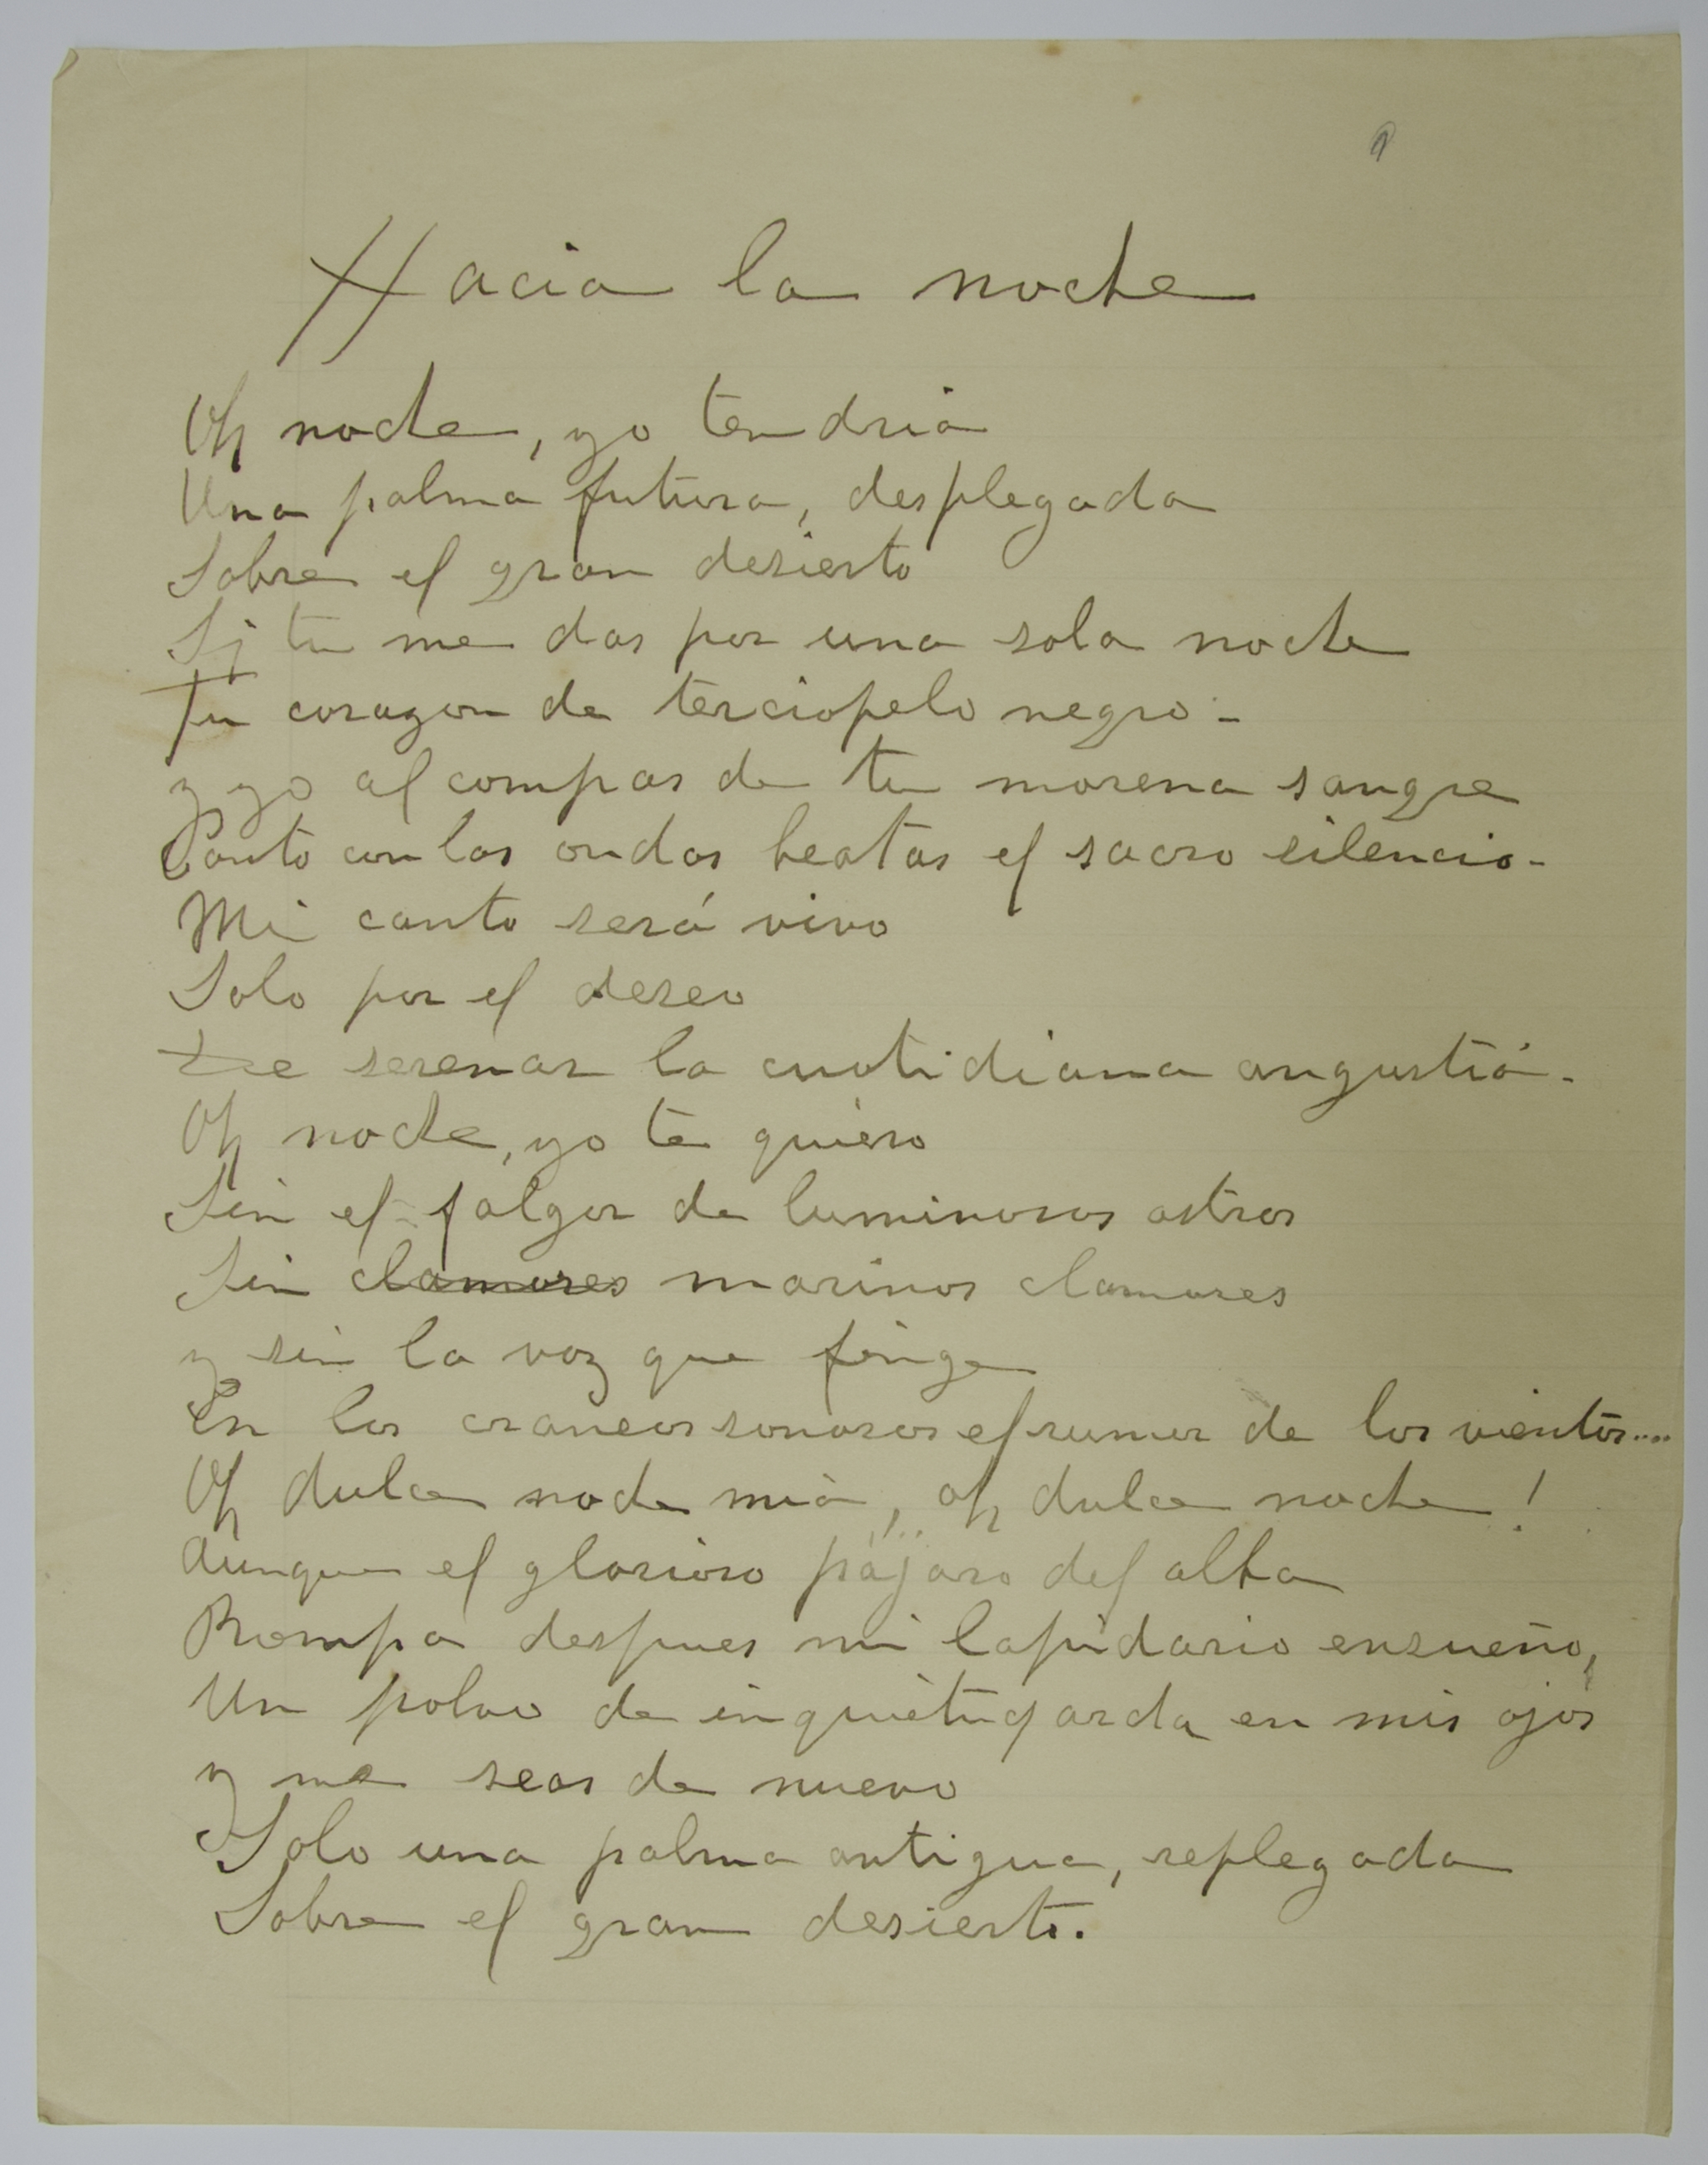 Hacia la noche
Oh noche, yo tendria
Una palma futura, desplegada
Sobre el gran desierto
Si tu me das por una sola noche
Tu corazon de terciopelo negro -
y yo al compas de tu morena sangre
Canto con las ondas beatas el sacro silencio -
Mi canto será vivo
Solo por el deseo
De serenar la cuotidiana angustia -
Oh noche, yo te quiero
Sin el fulgor de luminosos astros
Sin clamores marinos clamores
y sin la voz que finge
En los craneos sonoros el rumor de los vientos....
Oh dulce noche mia, oh dulce noche !
Aunque el glorioso pájaro del alba
Rompa despues mi lapidario ensueño,
Un polvo de inquietud arda en mis ojos
y me seas de nuevo
Solo una palma antigua, replegada
Sobre el gran desierto.